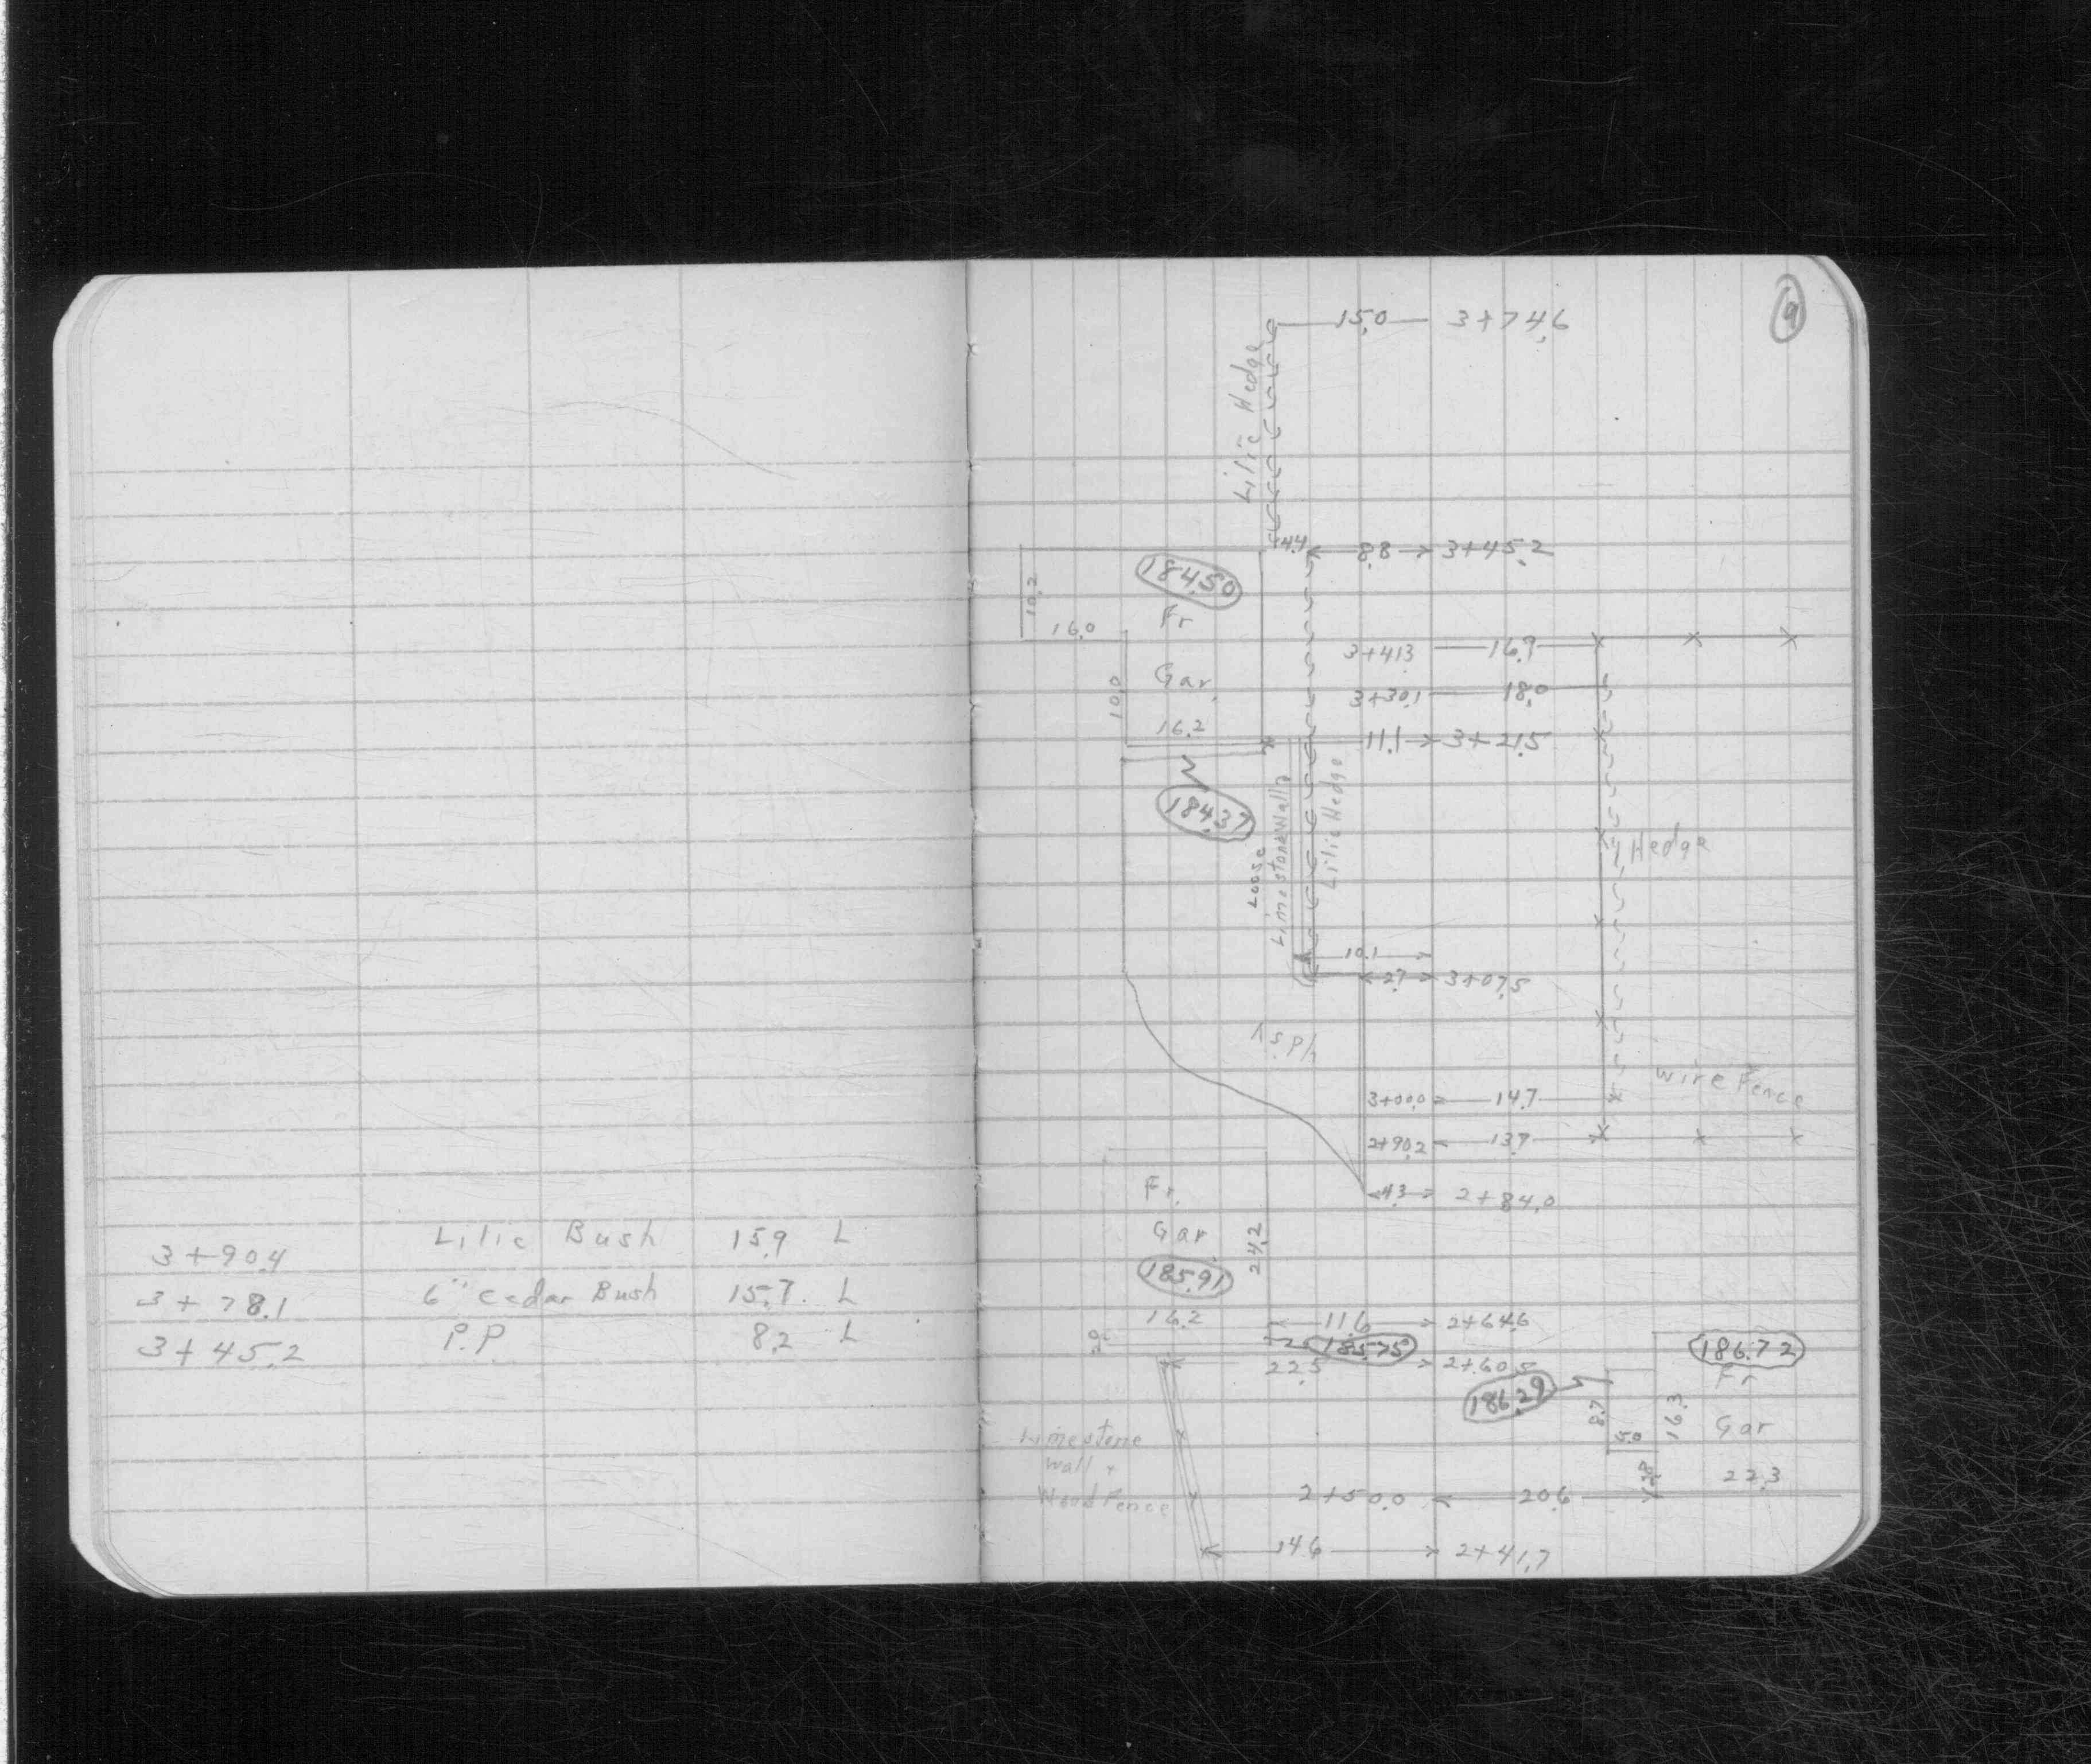 3+90.4 Lilic Bush 15.9 L
3+78.1 6" cedar Bush 15.7 L
3+45.2 P.P 8.2 L
9
15.0 3+74.6
Lilic Hedge
4.4 8.8 3+45.2
184.50
10.2
Fr
16.0
3+41.3 16.9
Gar.
10.0
3+30.1 18.0
16.2
11.1 3+21.5
184.37
Loose
Limestone Wall
Lilic Hedge
Hedge
10.1
2.7 3+07.5
Asph
Wire Fence
3+00.0 14.7
2+90.2 13.7
Fr.
4.3 2+84.0
Gar
24.2
185.91
16.2 11.6 2+64.6
185.75
186.72
22.5 2+60.5
Fr
186.29
8.7
16.3
Gar
5.0
Limestone
wall +
Wood Fence
22.3
2+50.0 20.6
14.6 2+41.7